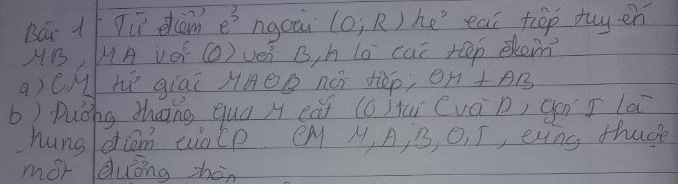 Bài 1 Từ điểm ở ngoài (O; R) kẻ các tiếp tuyến
MB, MA với (O) với B, A là các tiếp điểm
a) CM tứ giác MAOB nội tiếp, OM ⊥ AB
b) Đường thẳng qua M cắt (O) tại C và D, gọi I là
trung điểm của CD CM M, A, B, O, I, cùng thuộc
một đường tròn